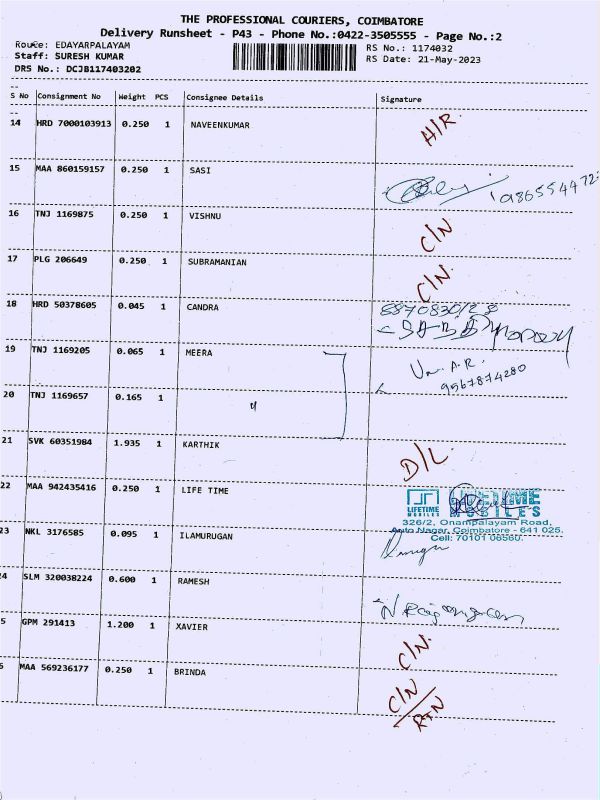 THE PROFESSIONAL COURIERS, COIMBATORE
Delivery Runsheet - P43 - Phone No.:0422-3505555 - Page No.:2
Route: EDAYARPALAYAM
RS No.: 1174032
Staff: SURESH KUMAR
RS Date: 21-May-2023
DRS No.: DCJB117403202
S No Consignment No Weight PCS Consignee Details Signature
14 HRD 7000103913 0.250 1 NAVEENKUMAR A/R
15 MAA 860159157 0.250 1 SASI
16 TNJ 1169875 0.250 1 VISHNU C/N
17 PLG 206649 0.250 1 SUBRAMANIAN C/N
18 HRD 50378605 0.045 1 CANDRA
19 TNJ 1169205 0.065 1 MEERA
9567874280
20 TNJ 1169657 0.165 1 "
21 SVK 60351984 1.935 1 KARTHIK D/L
22 MAA 942435416 0.250 1 LIFE TIME
LIFETIME MOBILES
LIFETIME MOBILES
326/2, Onampalayam Road,
Nagar, Coimbatore - 641 025.
Cell: 70101 06560.
23 NKL 3176585 0.095 1 ILAMURUGAN
4 SLM 320038224 0.600 1 RAMESH
5 GPM 291413 1.200 1 XAVIER C/N.
MAA 569236177 0.250 1 BRINDA C/N
RTN